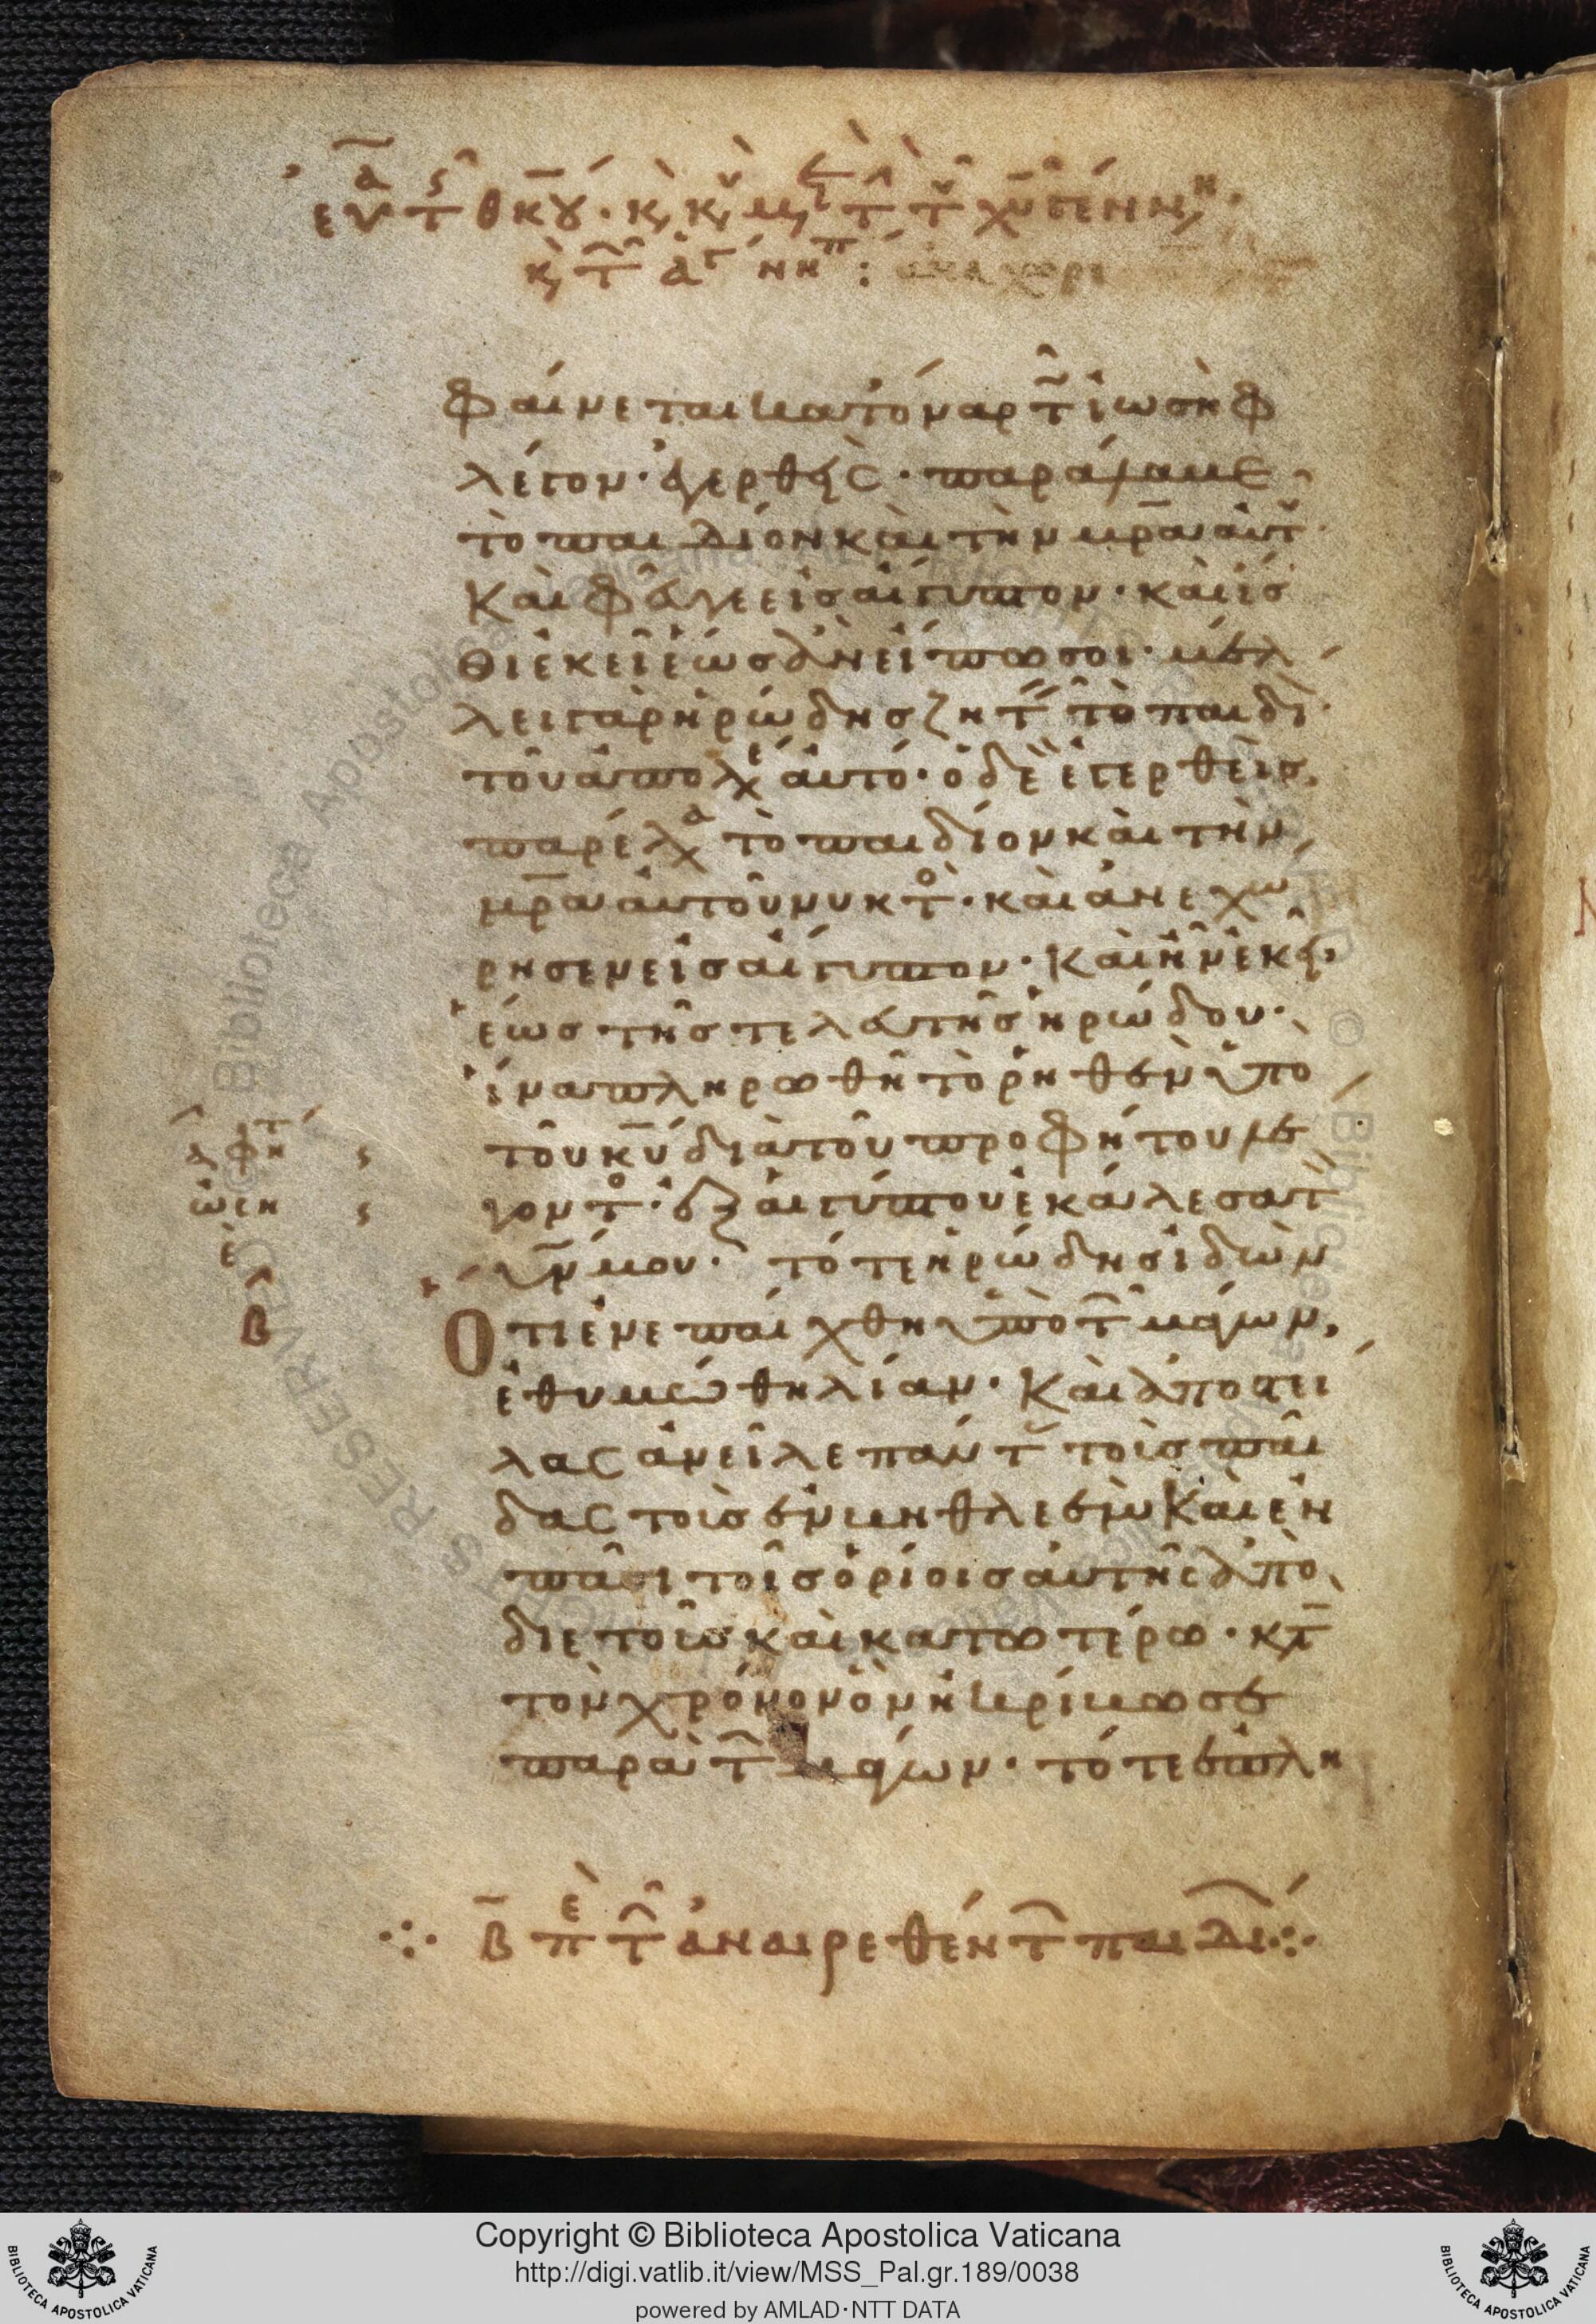 φαίνεται κατόναρ τῶ ἰωσὴφ
λέγον· ἐγερθεὶς· παράλαβε
τὸ παιδίον καὶ τὴν μρ̅α αὐτοῦ·
Καὶ φεῦγε εἰς αἴγυπτον· καὶ ἴσ
θι ἐκεῖ ἕως ἂν εἴπω σοι· μέλ
λει γὰρ ἡρώδης ζητεῖν τὸ παιδίον
τοῦ ἀπολέσαι αὐτό· ὁ δὲ ἐγερθεὶς,
παρέλαβε τὸ παιδίον καὶ τὴν
μρ̅α αὐτοῦ νυκτὸς· καὶ ἀνεχώ
ρησεν εἰς αἴγυπτον· Καὶ ἦν ἐκεῖ
ἕως τῆς τελευτῆς ἡρώδου·
ἵνα πληρωθῆ τὸ ῥηθὲν ὑπὸ
τοῦ κυ̅ διὰ τοῦ προφήτου λέ
γοντος· ἐξ αἰγύπτου ἐκάλεσα τὸν
υν̅ μου· τότε ἡρώδης ἰδὼν
Ὅτι ἐνεπαίχθη ὑπὸ τῶν μάγων,
ἐθυμώθη λίαν· Καὶ ἀποστεί
λας ἀνεῖλε πάντας τοὺς παῖ
δας τοὺς ἐν βηθλεὲμ Καὶ ἐν
πᾶσι τοῖς ὁρίοις αὐτῆς ἀπὸ
διετοῦς καὶ κατωτέρω· κατὰ
τὸν χρόνον ὃν ἠκρίβωσε
παρὰ τῶν μάγων· τότε ἐπλη
β̅ πε τῶν ἀναιρεθέντων παιδί
Copyright © Biblioteca Apostolica Vaticana
http://digi.vatlib.it/view/MSS_Pal.gr.189/0038
powered by AMLAD·NTT DATA
BIBLIOTECA APOSTOLICA VATICANA
BIBLIOTECA APOSTOLICA VATICANA